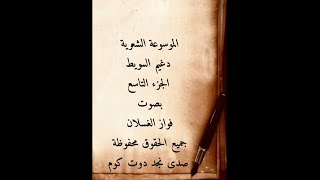 الموسوعة الشعرية
دغيم السويط
الجزء التاسع
بصوت
فواز الغسلان
جميع الحقوق محفوظة
صدى نجد دوت كوم